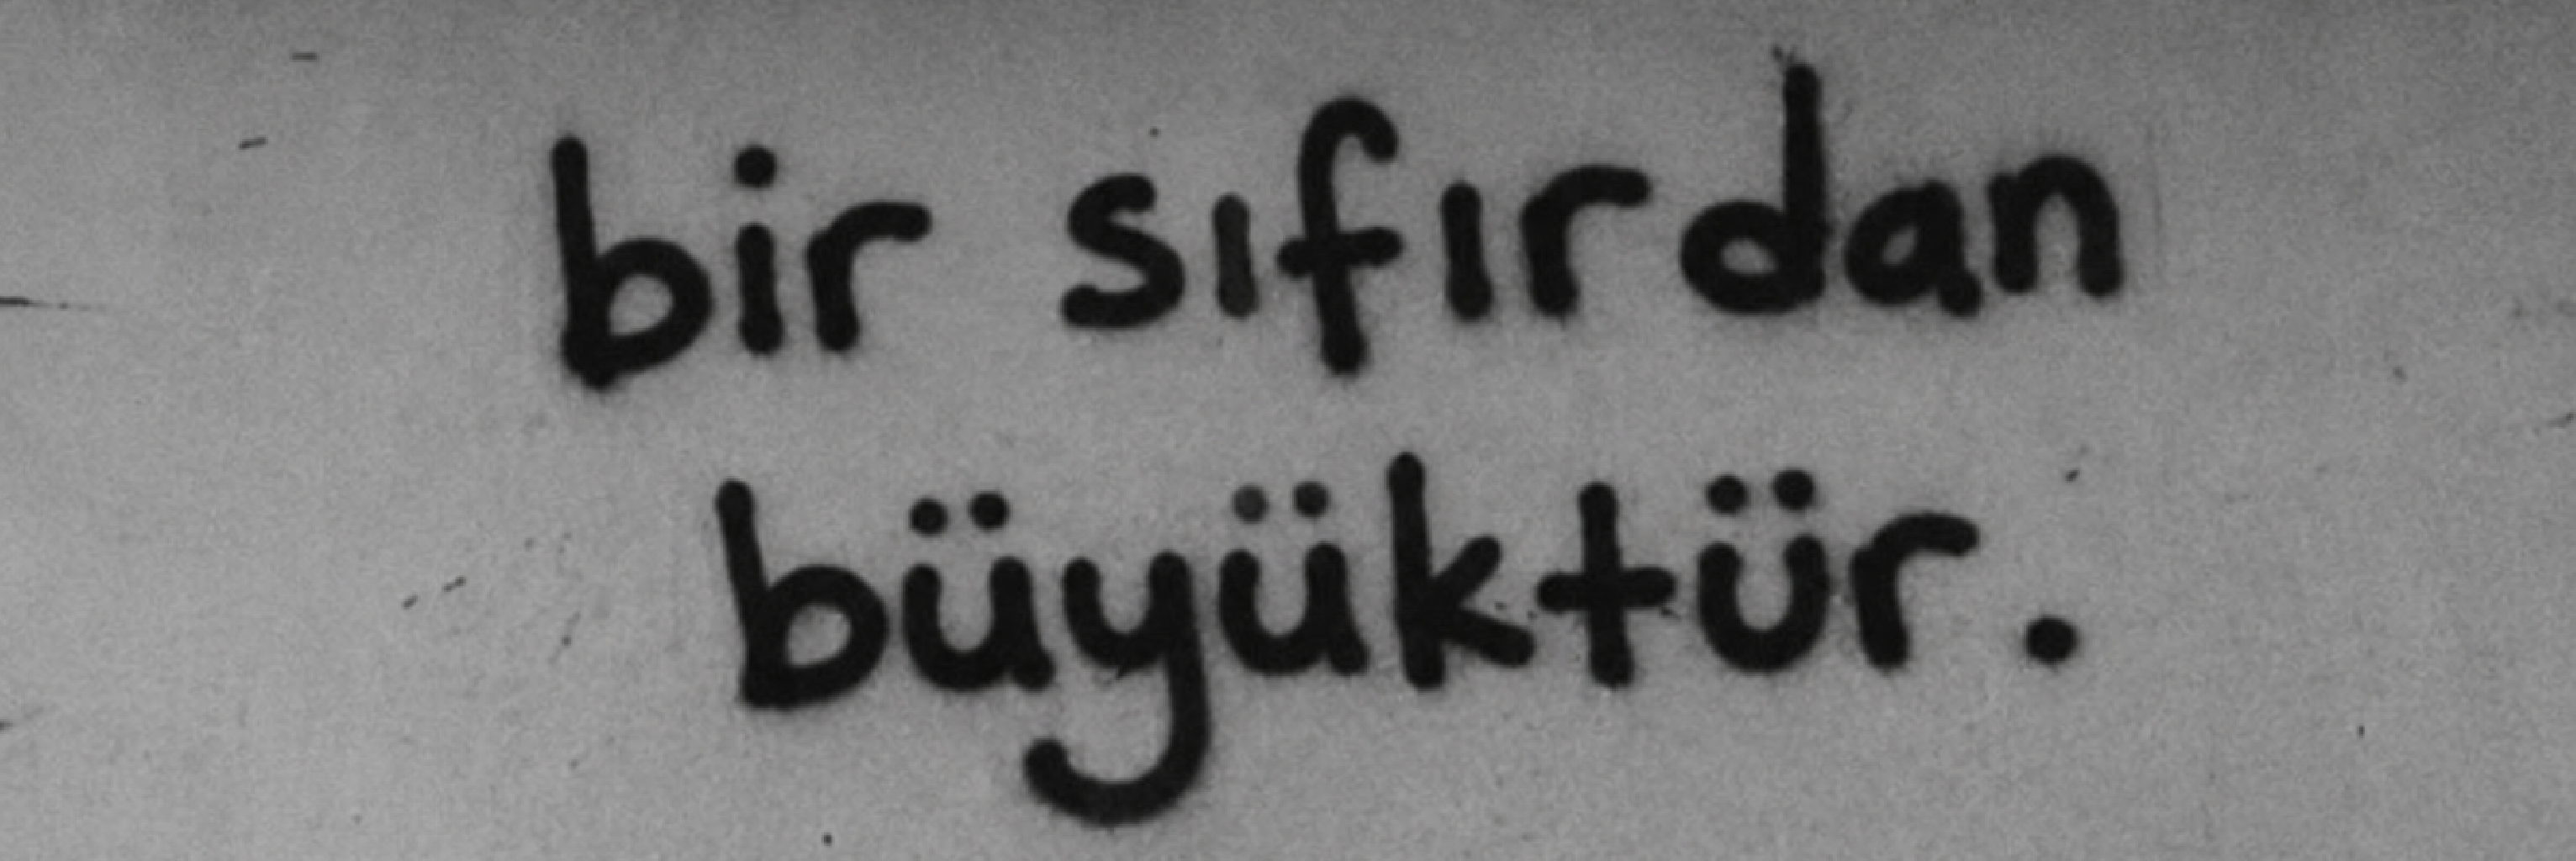 bir sıfırdan
büyüktür.